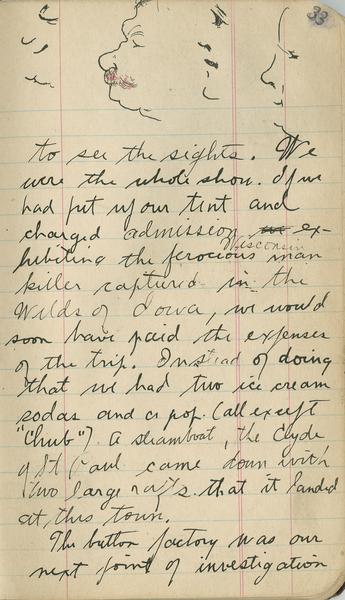 33
to see the sights. We
were the whole show. If we
had put up our tent and
charged admission ex-
hibiting the ferocious Wisconsin man
killer captured in the
Wilds of Iowa, we would
soon have paid the expenses
of the trip. Instead of doing
that we had two ice cream
sodas and a pop. (all except
"Chub"). A steamboat, the Clyde
of St Paul came down with
two large rafts that it landed
at this town.
The button factory was our
next point of investigation